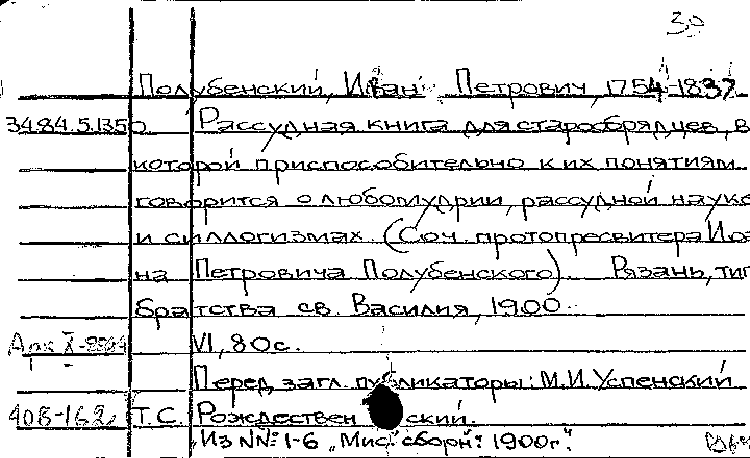 30
Полубенский, Иван Петрович, 1754-1837
34.84.5.135 Рассудная книга для старообрядцев, в
которой приспособительно к их понятиям
говорится о любомудрии, рассудной науке
и силлогизмах. (Соч. протопресвитера Иоа-
на Петровича Полубенского). Рязань, тип.
братства св. Василия, 1900.
VI, 80 с.
Перед загл. публикаторы: М.И. Успенский
408-162 Т.С. Рождественский.
Из №№ 1-6 „Мис. сборн." 1900г."